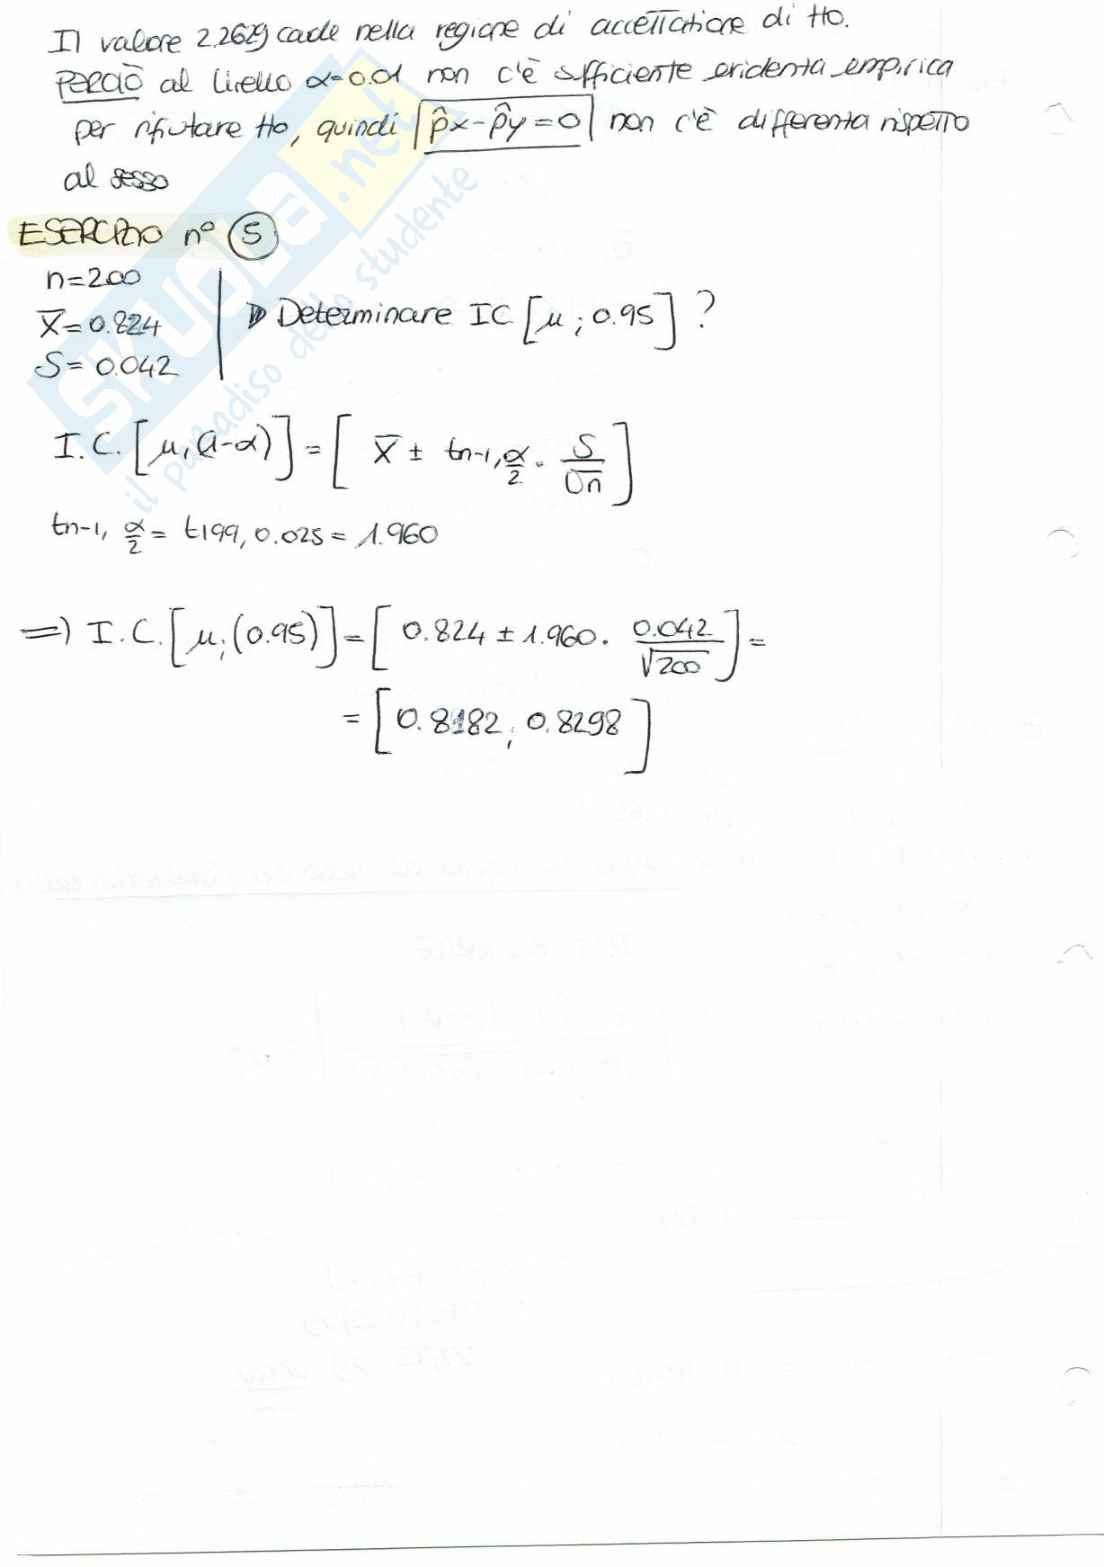 Il valore 2.2629 cade nella regione di accettazione di H0.
PERCIÒ al livello α=0.01 non c'è sufficiente evidenza empirica
per rifiutare H0, quindi p̂x-p̂y=0 non c'è differenza rispetto
al sesso
ESERCIZIO n° 5
n=200
x̄=0.824
S=0.042
Determinare IC [μ; 0.95] ?
I.C.[μ,(1-α)]=[ x̄ ± tn-1,α/2 · S/√n ]
tn-1, α/2 = t199, 0.025 = 1.960
=) I.C.[μ;(0.95)]=[ 0.824 ± 1.960 · 0.042/√200 ]=
=[0.8182; 0.8298]
SKUOLA.net
il paradiso dello studente